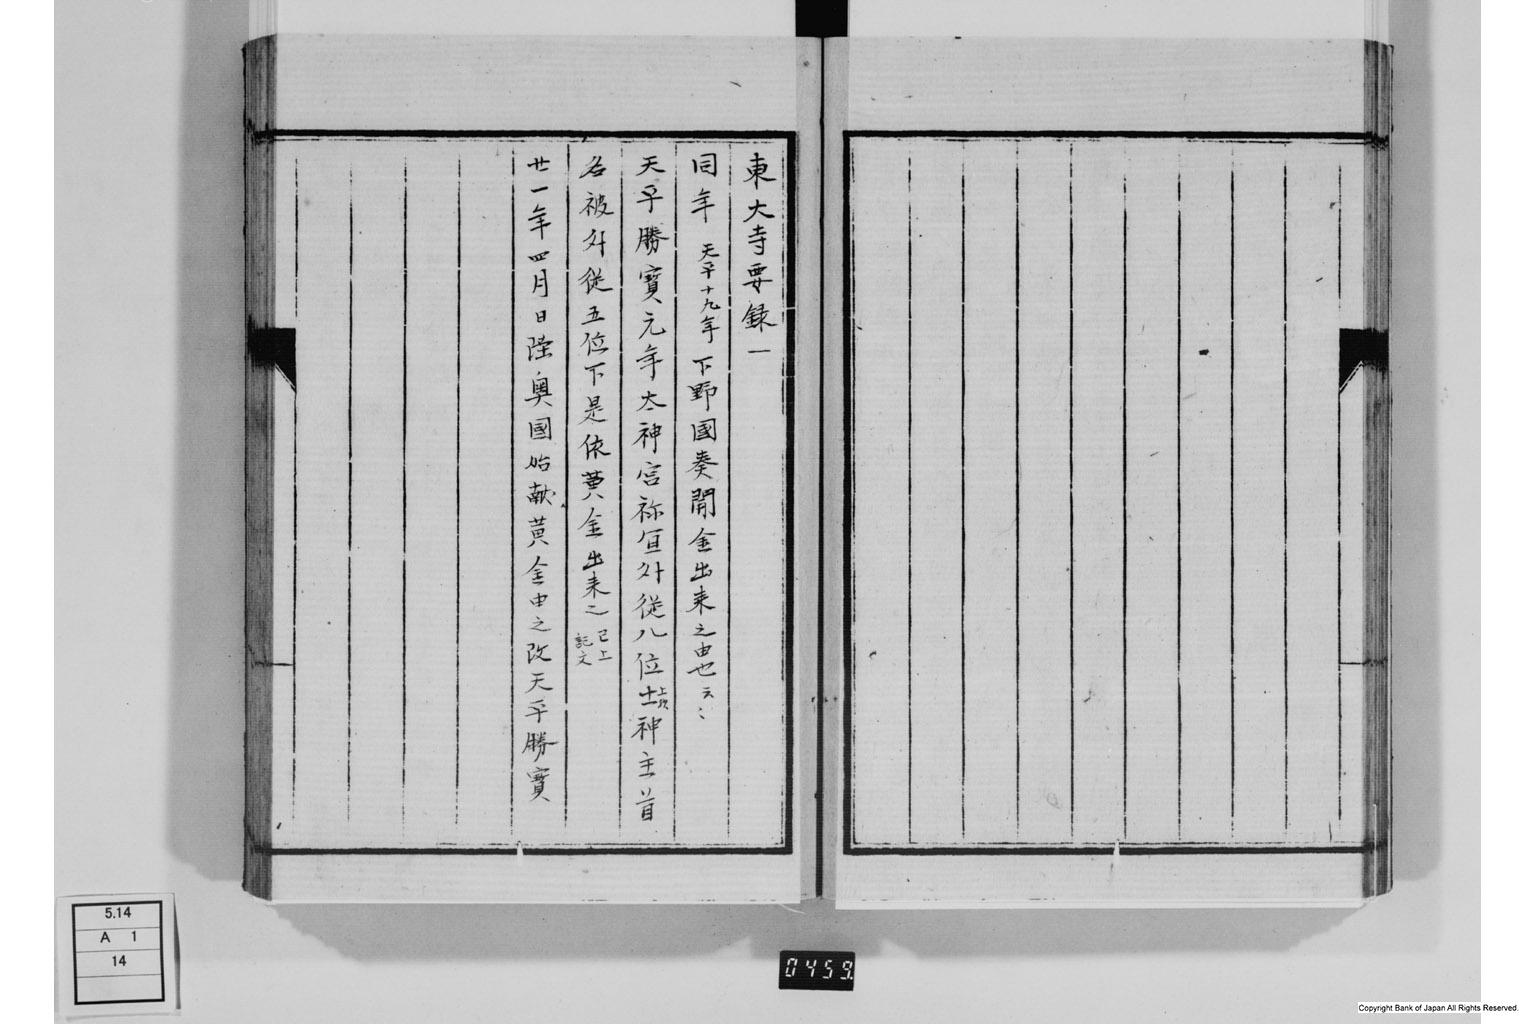 東大寺要録一
同年 天平十九年 下野國奏聞金出来之由也云〻
天平勝寶元年太神宮祢宜外従八位土上欤神主首
名被外従五位下是依黄金出来之 已上記文
廿一年四月日陸奥國始献黄金由之改天平勝寶
5.14
A 1
14
0459
Copyright Bank of Japan All Rights Reserved.